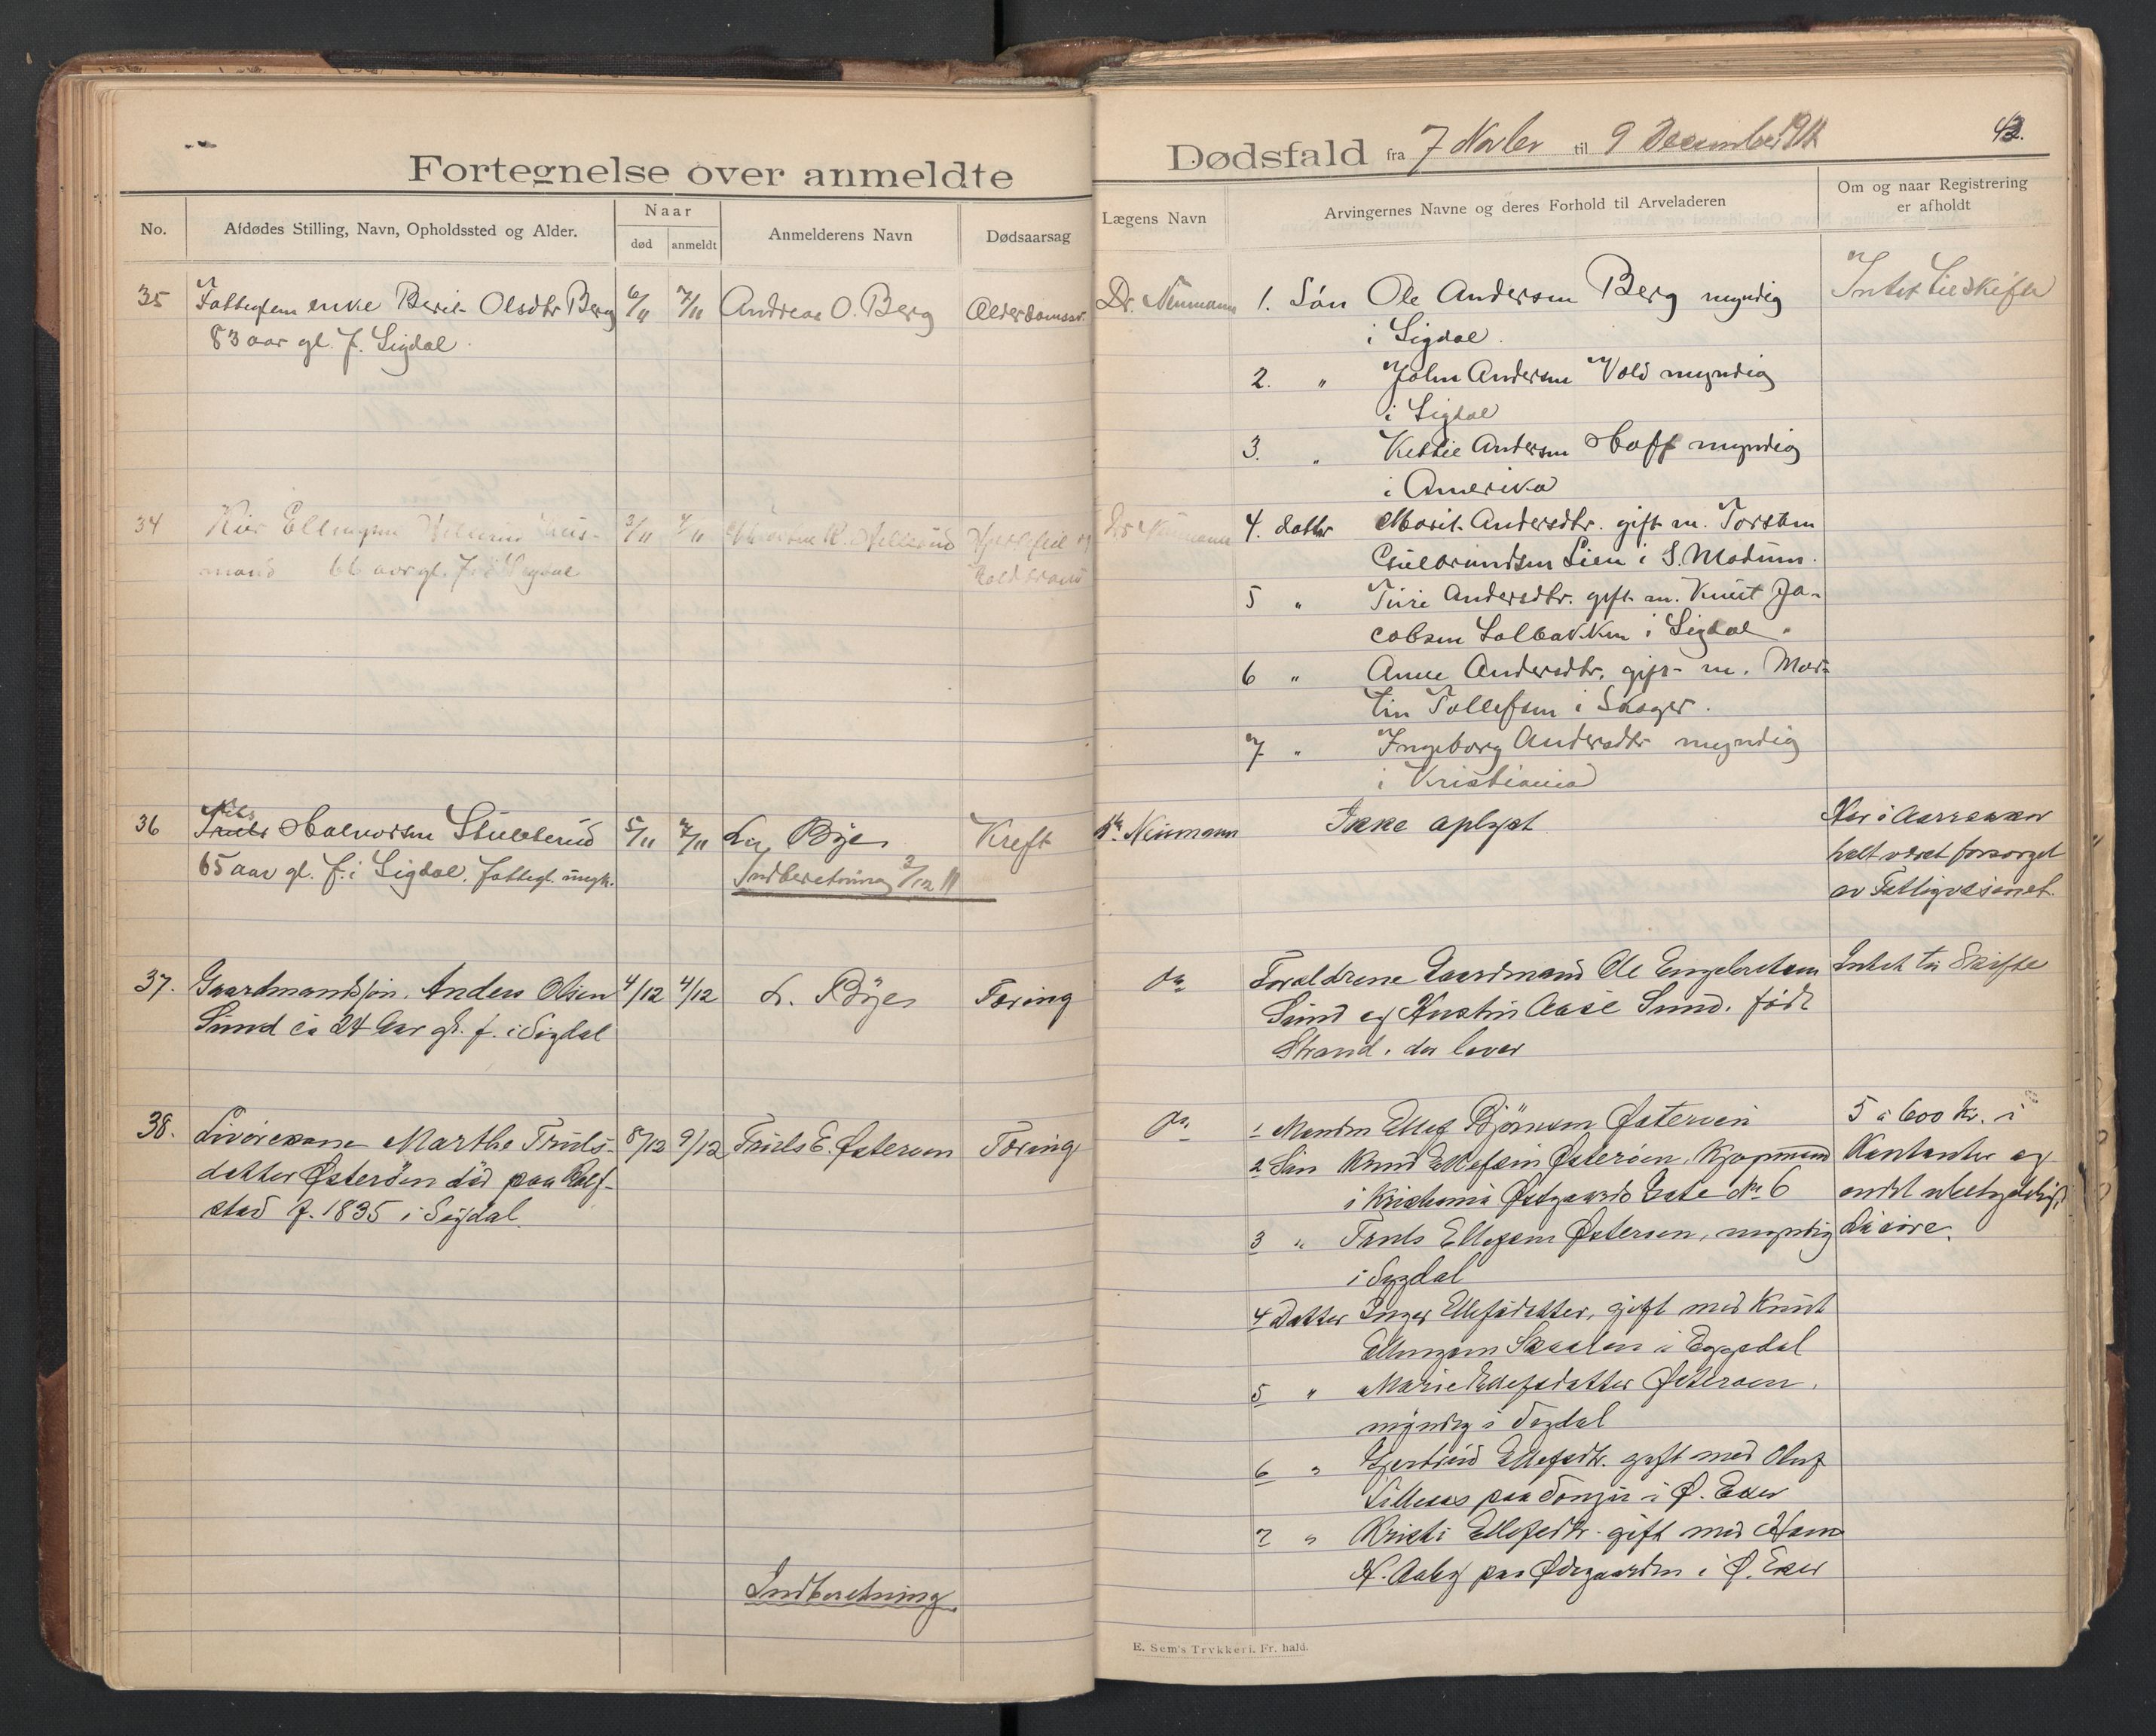 Fortegnelse over anmeldte
No.
Afdødes Stilling, Navn, Opholdssted og Alder.
Naar
død
anmeldt
Anmelderens Navn
Dødsaarsag
35 Fattiglem enke Berit Olsdtr Berg 6/11 7/11 Andreas O. Berg Alderdomssv.
83 aar gl. f. Sigdal.
34 Ellingsen 3/11 7/11
mand 66 aar gl. f. i Sigdal
36 Halvorsen Stubberud 5/11 7/11 L. Bøje Kreft
65 aar gl. f. i Sigdal. fattigl. ungk.
Indberetning 2/12 11
37. Gaardmandssøn Anders Olsen 4/12 4/12 L. Bøje Tæring
Sund ca 24 Aar gl. f. i Sigdal
38. Livørekone Marthe Truls- 8/12 9/12 Truls E. Østerøen Tæring
datter Østerøen død paa Rolf-
stad f. 1835 i Sigdal.
Indberetning
Dødsfald fra 7 Novbr til 9 December 1911
42.
Lægens Navn
Arvingernes Navne og deres Forhold til Arveladeren
Om og naar Registrering
er afholdt
Dr. Neumann 1. Søn Ole Andersen Berg myndig Intet til skifte
i Sigdal.
2. " John Andersen Vold myndig
i Sigdal
3. " Kittil Andersen Hoff myndig
i Amerika
4. datter Marit Andersdtr. gift m. Torsten
Gulbrandsen Lien i S. Modum.
5 " Turi Andersdtr. gift m. Knut Ja-
cobsen Solbakken i Sigdal.
6 " Anne Andersdtr. gift m. Mar-
tin Tollefsen i Skoger.
7 " Ingeborg Andersdtr myndig
i Kristiania
Dr. Neumann Ikke oplyst Har i Aarrekker
helt været forsørget
av Fattigvæsenet.
do Forældrene Gaardmand Ole Engebretsen Intet til Skifte
Sund og Kristin Aase Sund, født
Strand. der lever
do 1 Manden Ellef Bjørnsen Østerøen 5 à 600 Kr. i
2 Søn Knud Ellefsen Østerøen, Kjøpmand Kontanter og
i Kristiania Østgaards Gate No 6 andet ubetydeligt
3 " Truls Ellefsen Østerøen, myndig Løsøre.
i Sigdal
4 Datter Inger Ellefsdatter, gift med Knut
Ellingsen Skaalen i Eggedal
5 " Marie Ellefsdatter Østerøen.
myndig i Sigdal
6 " Gjertrud Ellefsdtr. gift med Oluf
paa i Ø. Eker
7 " Kristi Ellefsdtr. gift med Hans
H. Aaby paa Ødegaarden i Ø. Eker
E. Sem's Trykkeri, Fr.hald.